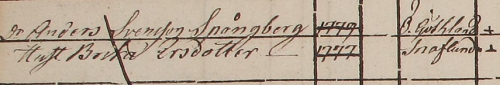 Dr Anders Svensson Spångberg 1779 Ö. Göthland +
Hust Ersdotter 1777